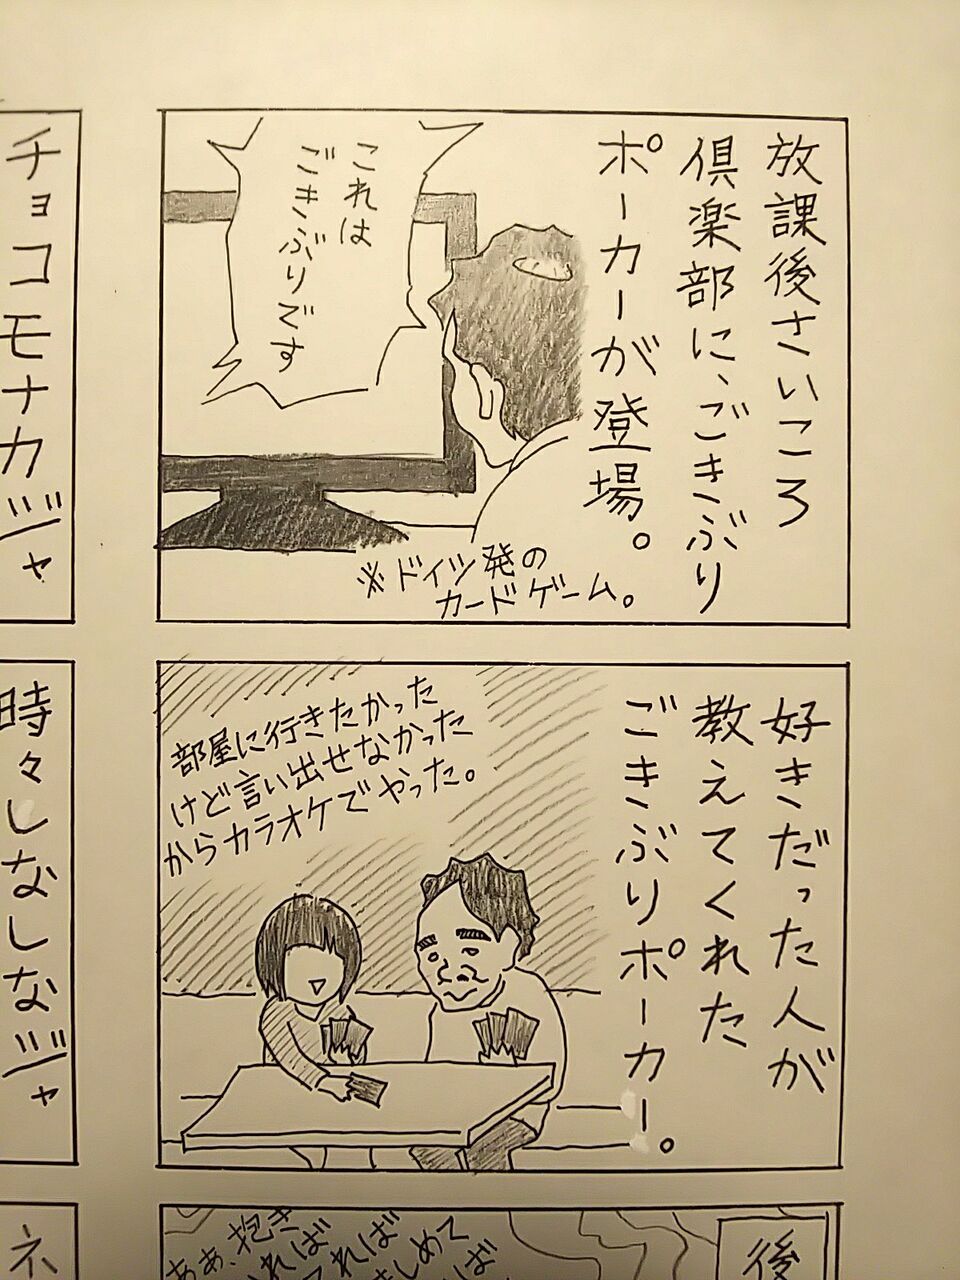 放課後さいころ
倶楽部に、ごきぶり
ポーカーが登場。
これは
ごきぶりです
※ドイツ発の
カードゲーム。
好きだった人が
教えてくれた
ごきぶりポーカー。
部屋に行きたかった
けど言い出せなかった
からカラオケでやった。
後
ああ、抱き
れば
れば
しめて
ば
チョコモナカジャ
時々しなしなジャ
ネ